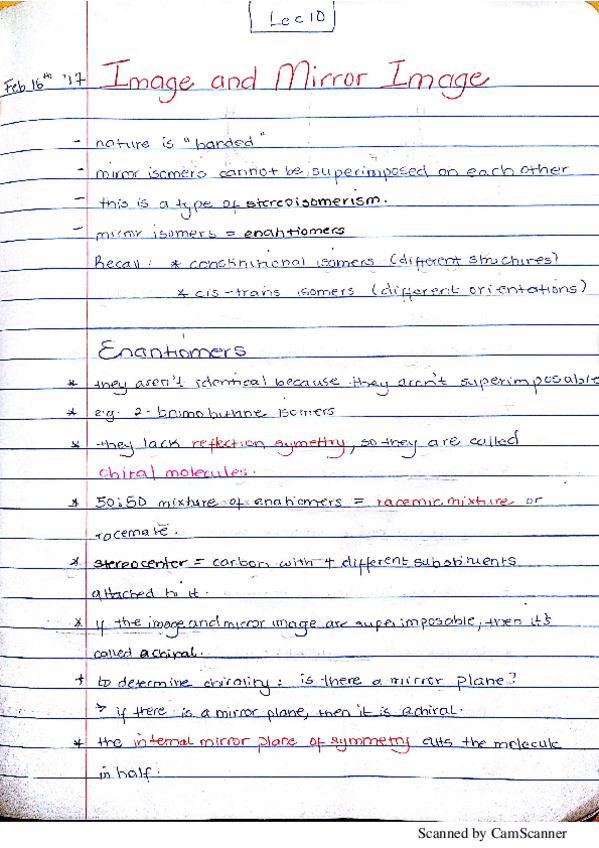 Lec 10
Feb 16th '17
Image and Mirror Image
- nature is "handed"
- mirror isomers cannot be superimposed on each other
- this is a type of stereoisomerism.
- mirror isomers = enantiomers
Recall: * constitutional isomers (different structures)
* cis-trans isomers (different orientations)
Enantiomers
* they aren't identical because they aren't superimposable
* e.g. 2-bromobutane isomers
* they lack reflection symettry, so they are called
chiral molecules.
* 50:50 mixture of enatiomers = racemic mixture or
racemate.
* stereocenter = carbon with 4 different substituents
attached to it.
* if the image and mirror image are superimposable, then it's
called achiral.
* to determine chirality: is there a mirror plane?
> if there is a mirror plane, then it is achiral.
* the internal mirror plane of symmetry cuts the molecule
in half.
Scanned by CamScanner